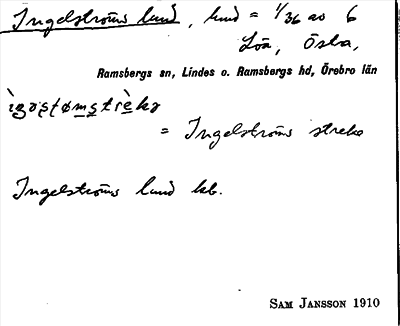 Ingelströms lund, lund = 1/36 av 6
Löa, Östra,
Ramsbergs sn, Lindes o. Ramsbergs hd, Örebro län
= Ingelströms streke
Ingelströms lund kb.
SAM JANSSON 1910